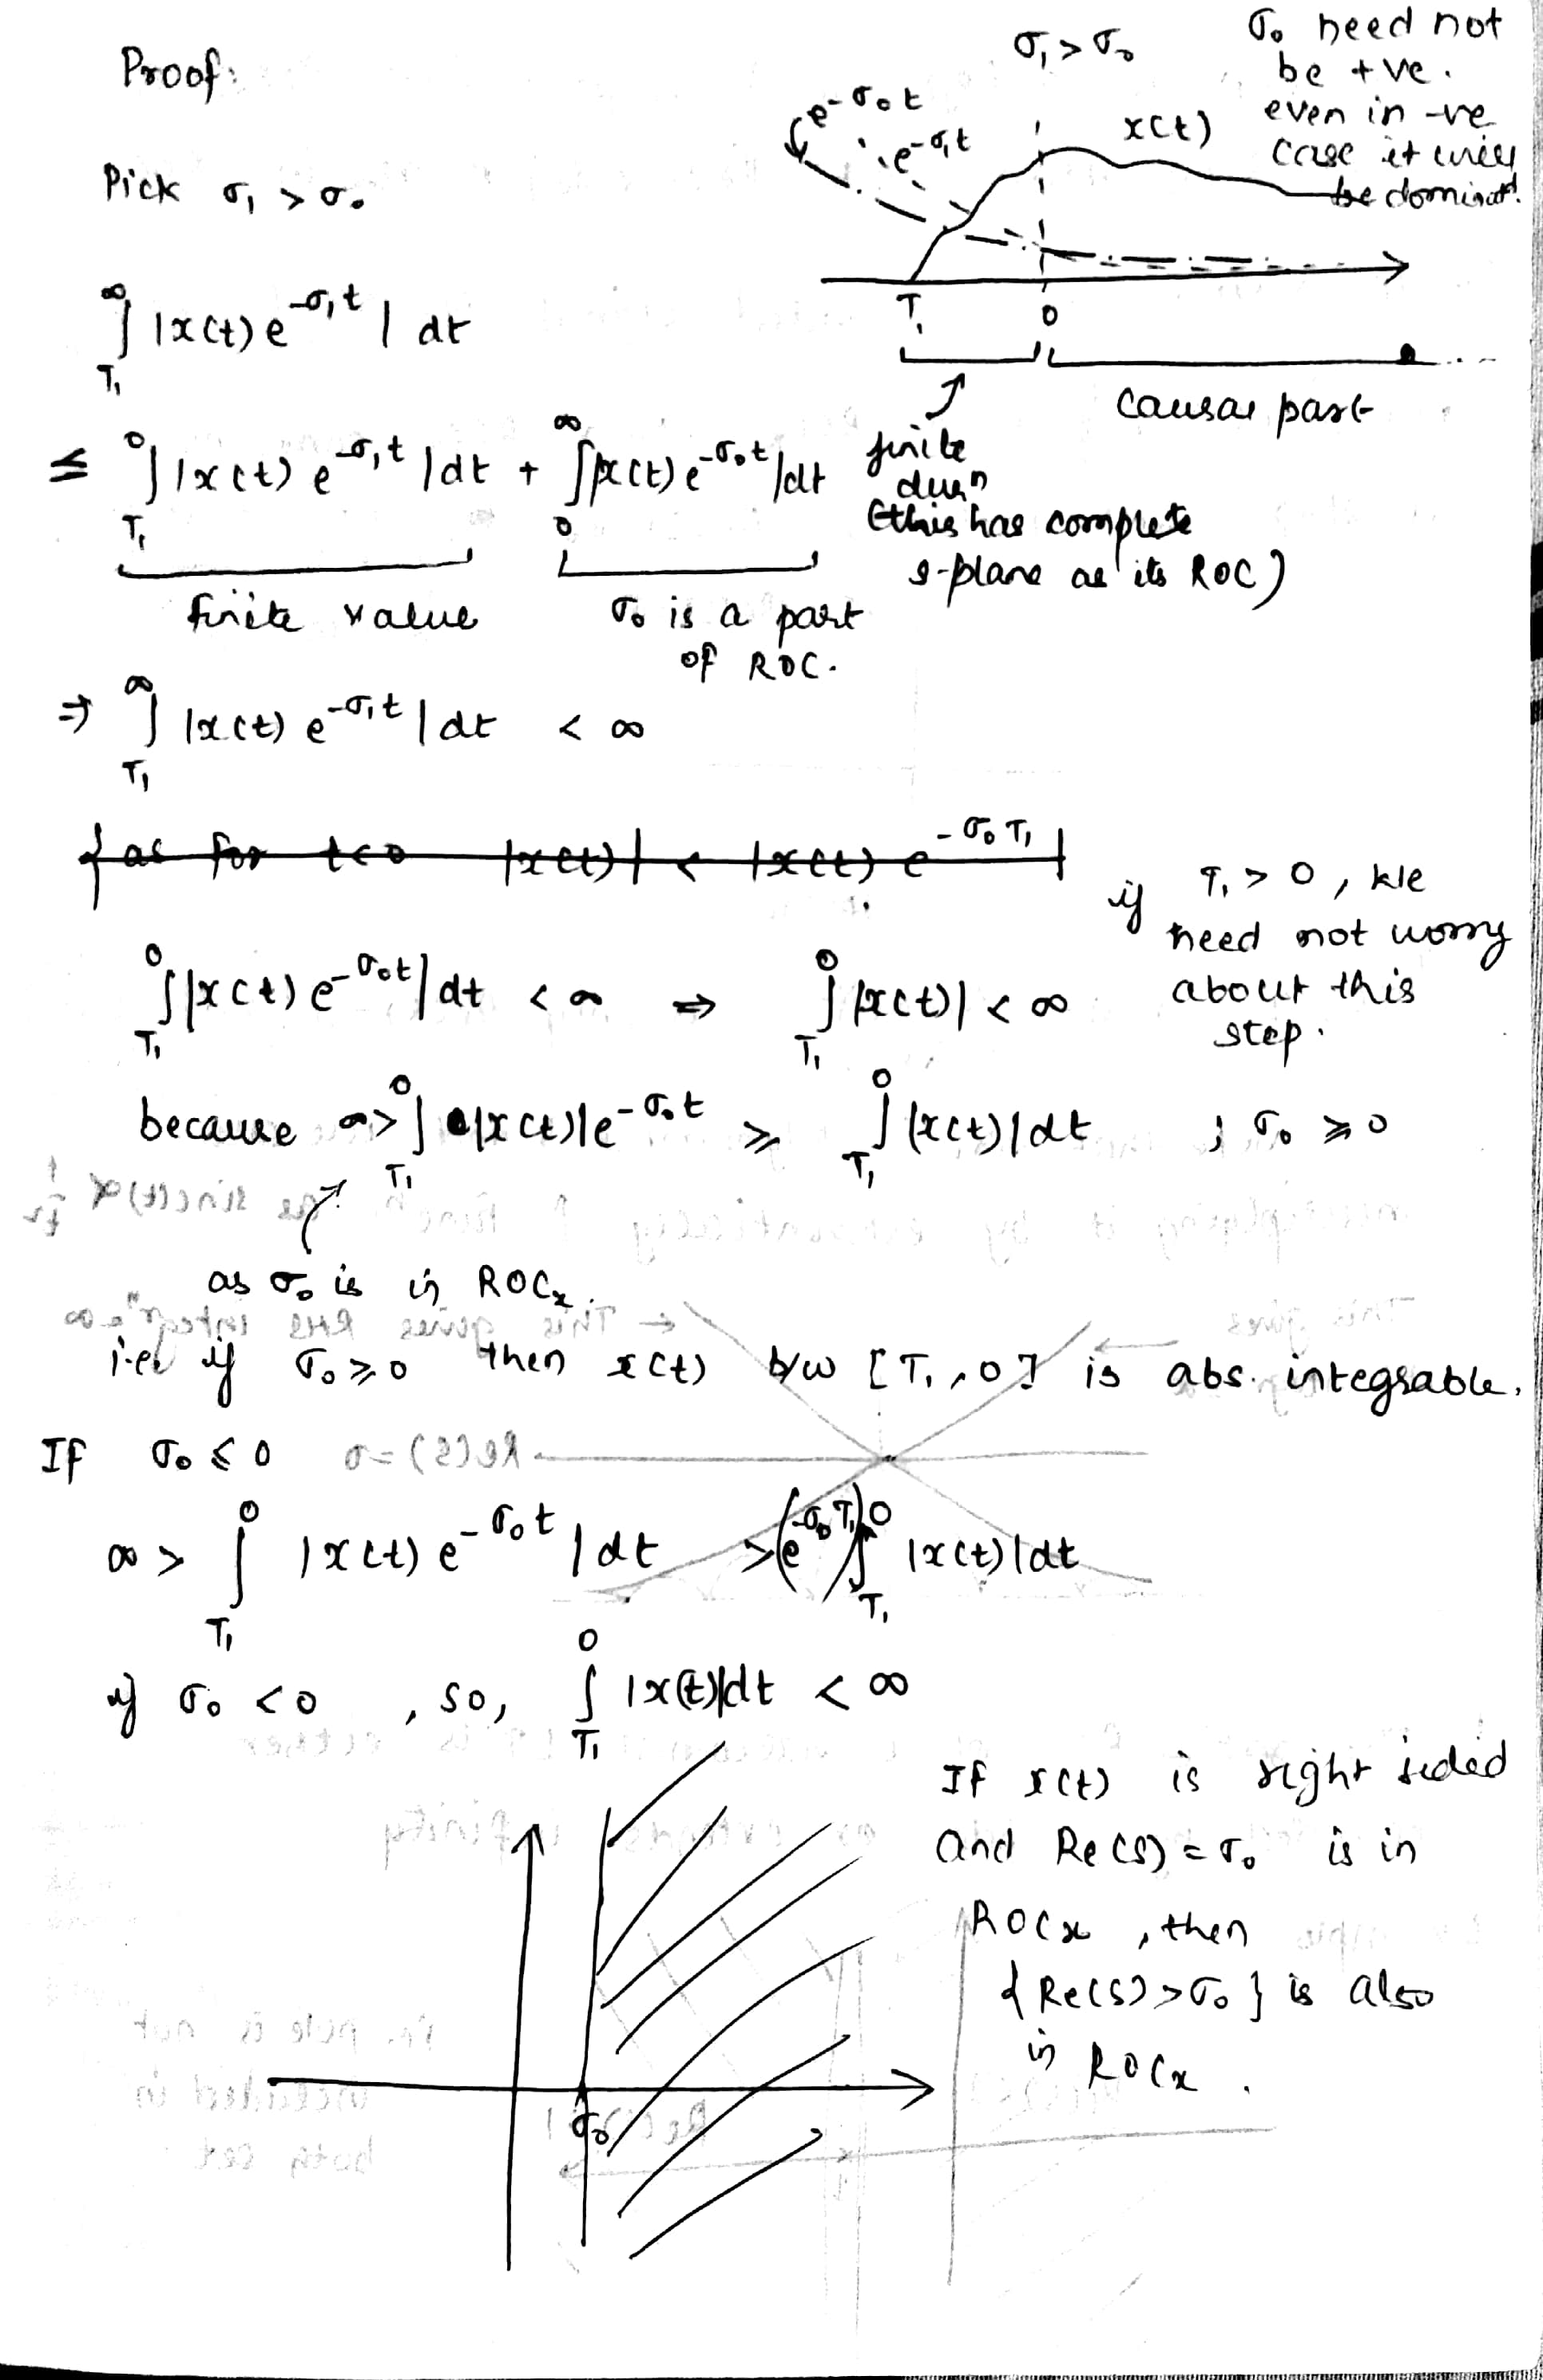 Proof:
σ₁ > σ₀
σ₀ need not
be +ve.
even in -ve
case it will
be dominated.
e^{-σ₀t}
e^{-σ₁t}
x(t)
T₁
0
finite
durⁿ
(this has complete
s-plane as its ROC)
causal part
Pick σ₁ > σ₀
∫_{T₁}^{∞} |x(t) e^{-σ₁t}| dt
≤ ∫_{T₁}^{0} |x(t) e^{-σ₁t}| dt + ∫_{0}^{∞} |x(t) e^{-σ₀t}| dt
finite value
σ₀ is a part
of ROC.
⇒ ∫_{T₁}^{∞} |x(t) e^{-σ₁t}| dt < ∞
{ as for t<0 |x(t)| < |x(t) e^{-σ₀T₁}|
if T₁ > 0, we
need not worry
about this
step.
∫_{T₁}^{0} |x(t) e^{-σ₀t}| dt < ∞ ⇒ ∫_{T₁}^{0} |x(t)| < ∞
because ∞ > ∫_{T₁}^{0} |x(t)| e^{-σ₀t} ≥ ∫_{T₁}^{0} |x(t)| dt ; σ₀ ≥ 0
as σ₀ is in ROCₓ.
i.e. if σ₀ ≥ 0 then x(t) b/w [T₁, 0] is abs. integrable.
If σ₀ ≤ 0
∞ > ∫_{T₁}^{0} |x(t) e^{-σ₀t}| dt > (e^{-σ₀T₁}) ∫_{T₁}^{0} |x(t)| dt
if σ₀ < 0, so, ∫_{T₁}^{0} |x(t)| dt < ∞
If x(t) is right sided
and Re(s) = σ₀ is in
ROCₓ, then
{Re(s) > σ₀} is also
in ROCₓ.
σ₀